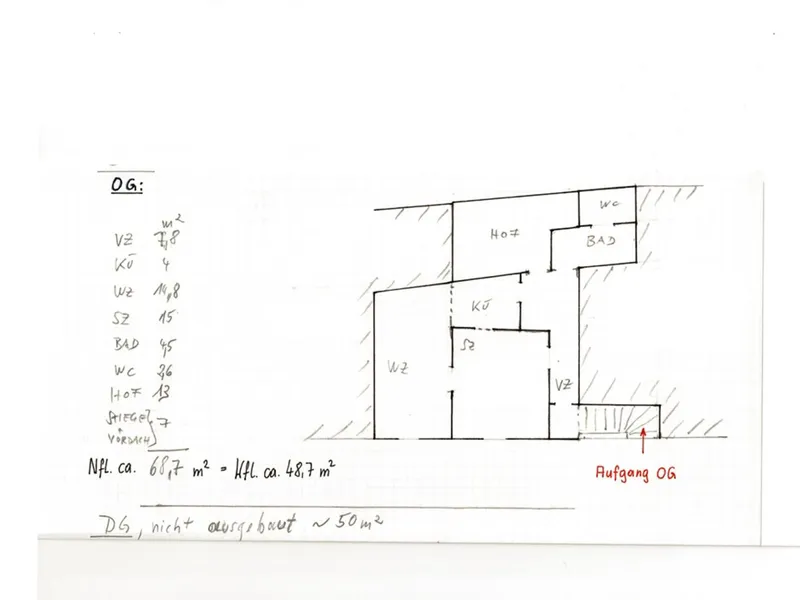 OG:
m²
VZ 7,8
KÜ 4
WZ 14,8
SZ 15
BAD 4,5
WC 2,6
HOF 13
STIEGE
VORDACH } 7
Nfl. ca. 68,7 m² = Wfl. ca. 48,7 m²
DG, nicht ausgebaut ~ 50 m²
WC
HOF
BAD
KÜ
SZ
WZ
VZ
Aufgang OG